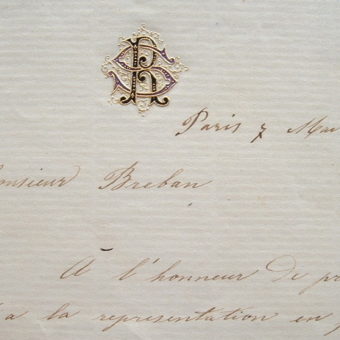 Paris 7 Mai
onsieur Breban
A l'honneur de pr
a la representation en